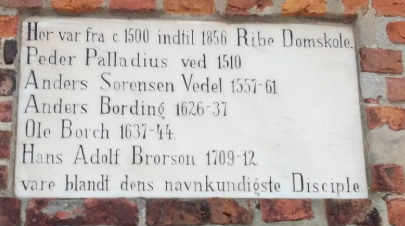 Her var fra c. 1500 indtil 1856 Ribe Domskole.
Peder Palladius ved 1510
Anders Sørensen Vedel 1557-61
Anders Bording 1626-37
Ole Borch 1637-44.
Hans Adolf Brorson 1709-12
vare blandt dens navnkundigste Disciple.